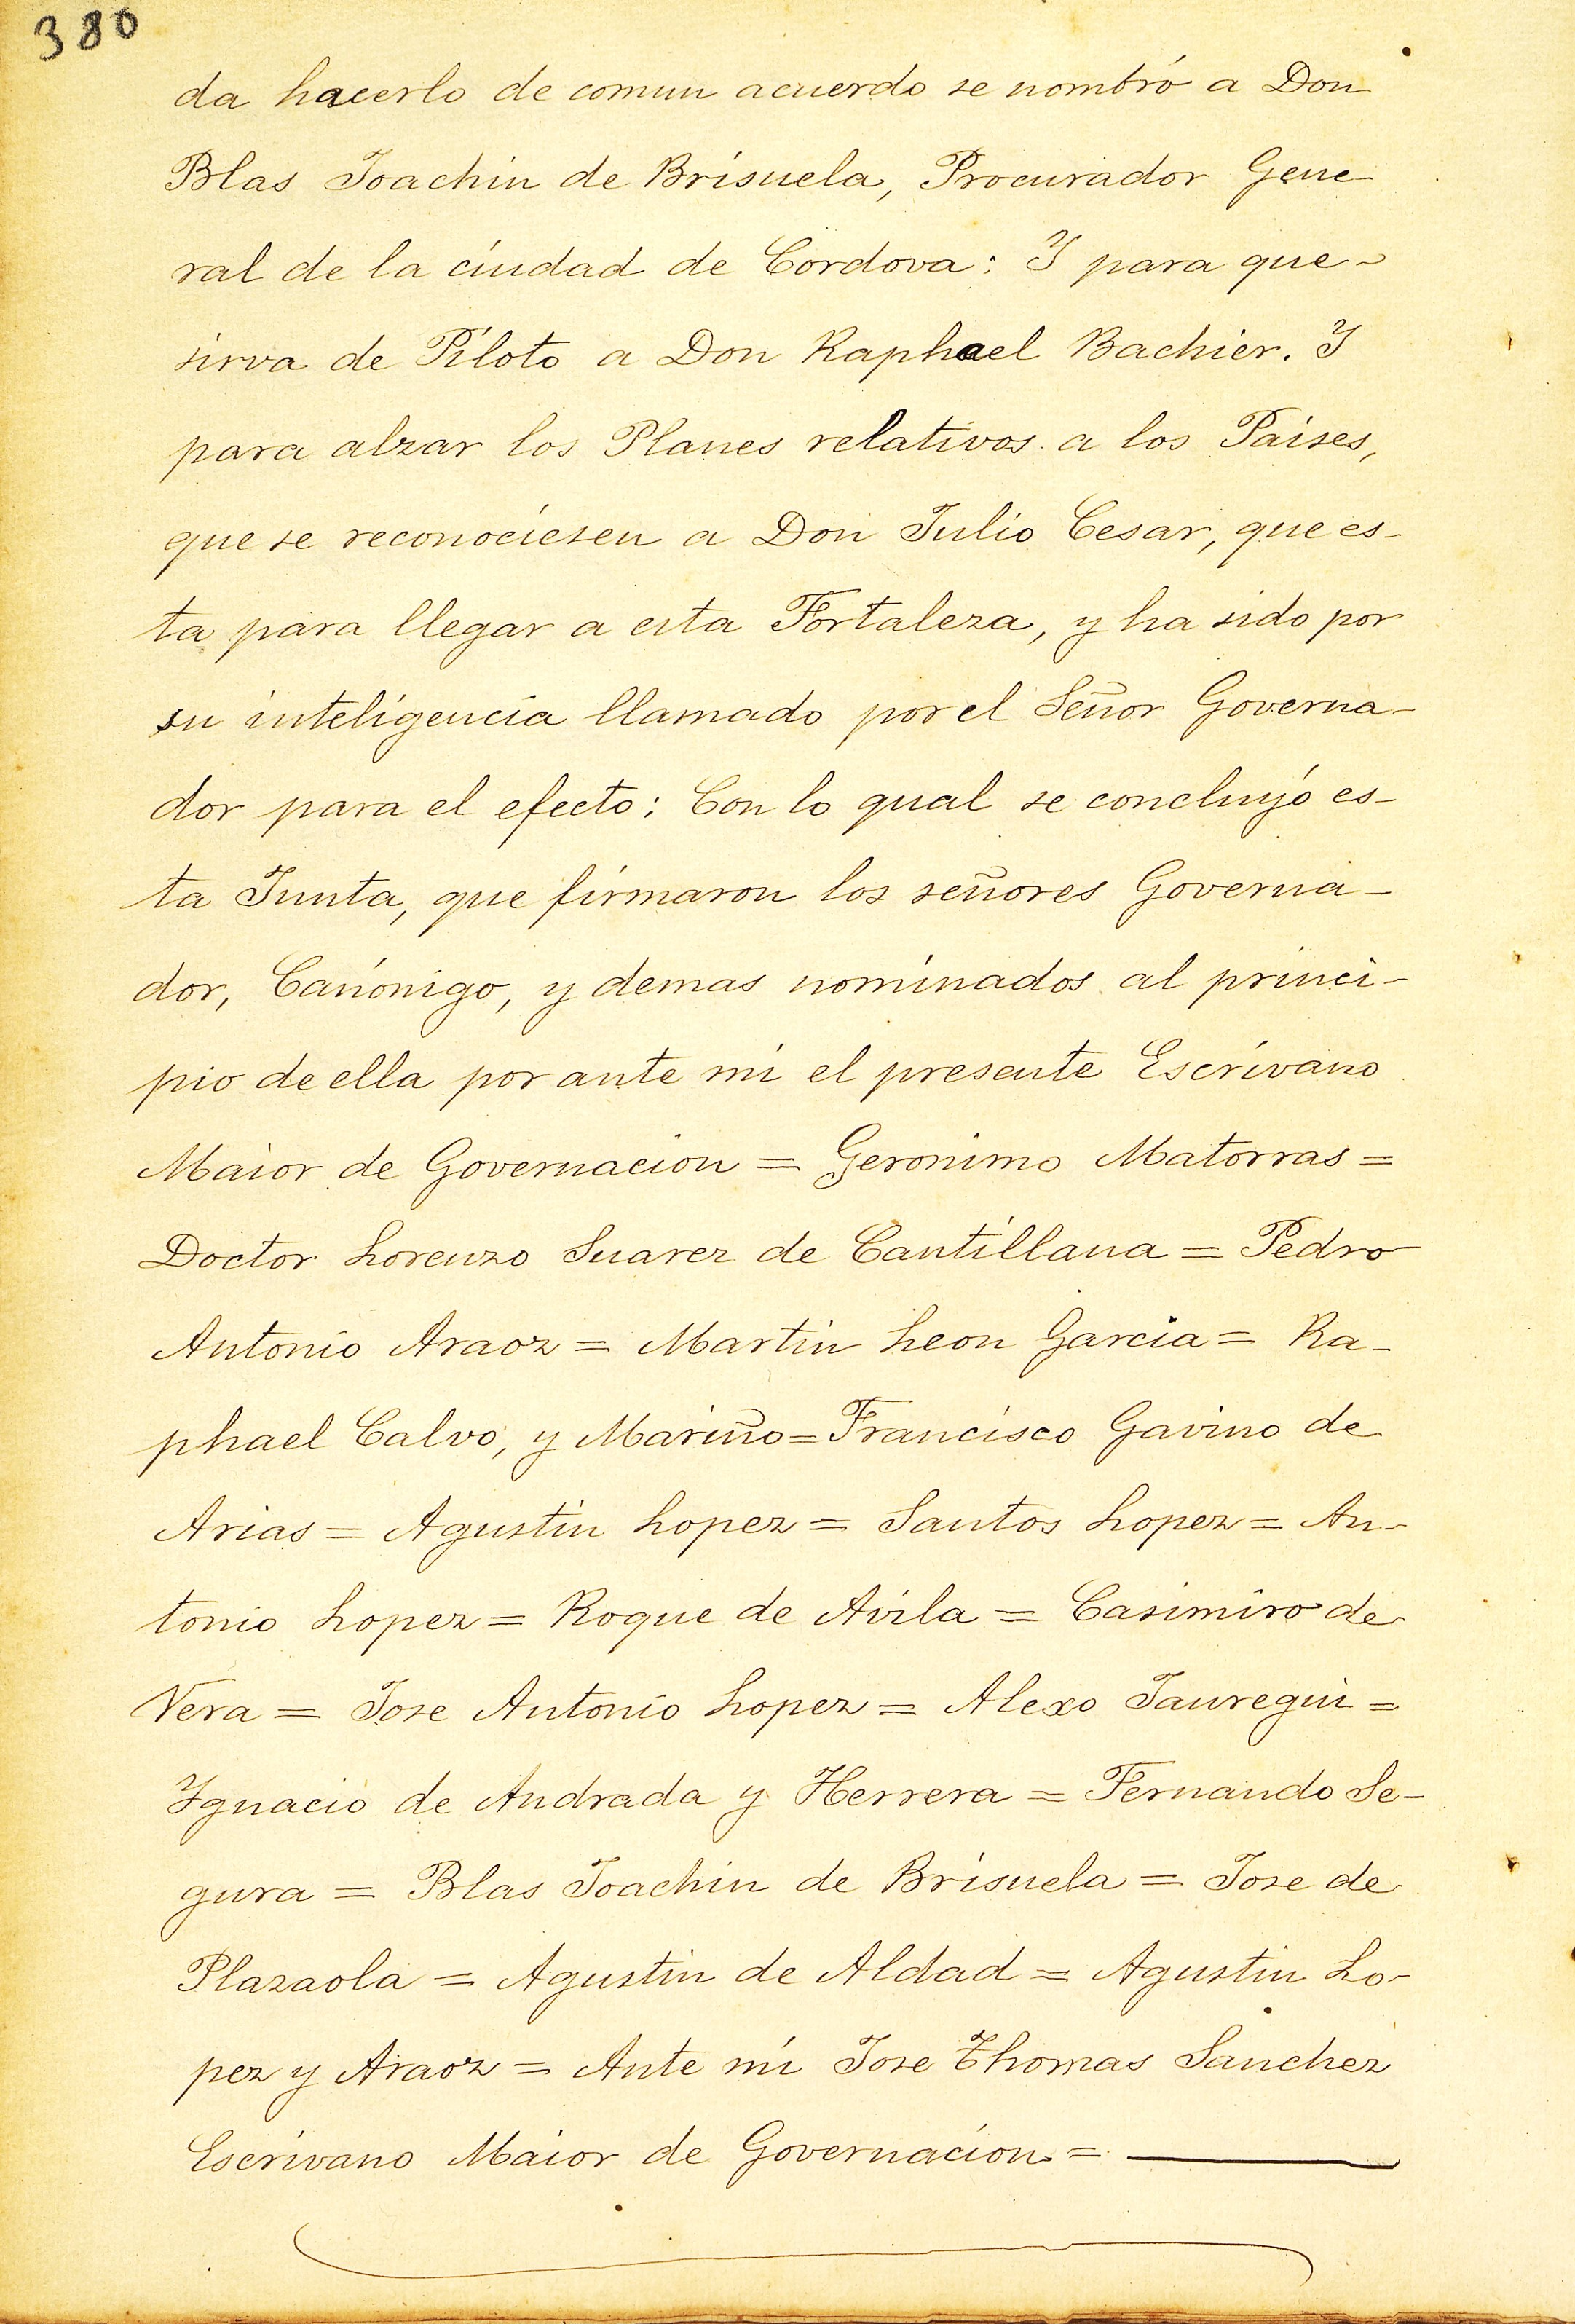 380
da hacerlo de comun acuerdo se nombró a Don
Blas Joachin de Brisuela, Procurador Gene
ral de la ciudad de Cordova: Y para que-
sirva de Piloto a Don Raphael Bachier. Y
para alzar los Planes relativos a los Paises,
que se reconociesen a Don Julio Cesar, que es-
ta para llegar a esta Fortaleza, y ha sido por
su inteligencia llamado por el Señor Governa-
dor para el efecto: Con lo qual se concluyó es-
ta Junta, que firmaron los señores Governa-
dor, Canónigo, y demas nominados al princi-
pio de ella por ante mi el presente Escrivano
Maior de Governacion = Geronimo Matorras =
Doctor Lorenzo Suarez de Cantillana = Pedro
Antonio Araoz = Martin Leon Garcia = Ra-
phael Calvo, y Mariño = Francisco Gavino de
Arias = Agustin Lopez = Santos Lopez = An-
tonio Lopez = Roque de Avila = Casimiro de
Vera = Jose Antonio Lopez = Alexo Jauregui =
Ygnacio de Andrada y Herrera = Fernando Se-
gura = Blas Joachin de Brisuela = Jose de
Plazaola = Agustin de Aldad = Agustin Lo-
pez y Araoz = Ante mi Jose Thomas Sanchez
Escrivano Maior de Governacion =